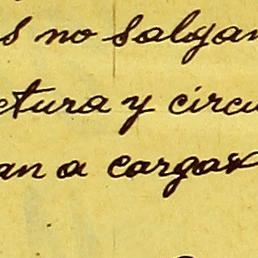 s no salgan
etura y circu
an a cargar